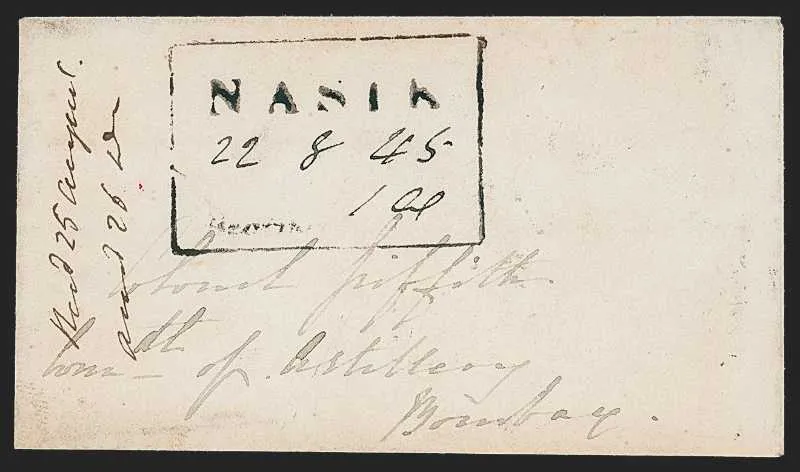 NASIK
22 8 45
1 a
Colonel Griffith
Com dt of Artillery
Bombay.
Recd 25 August.
ansd 26 Do